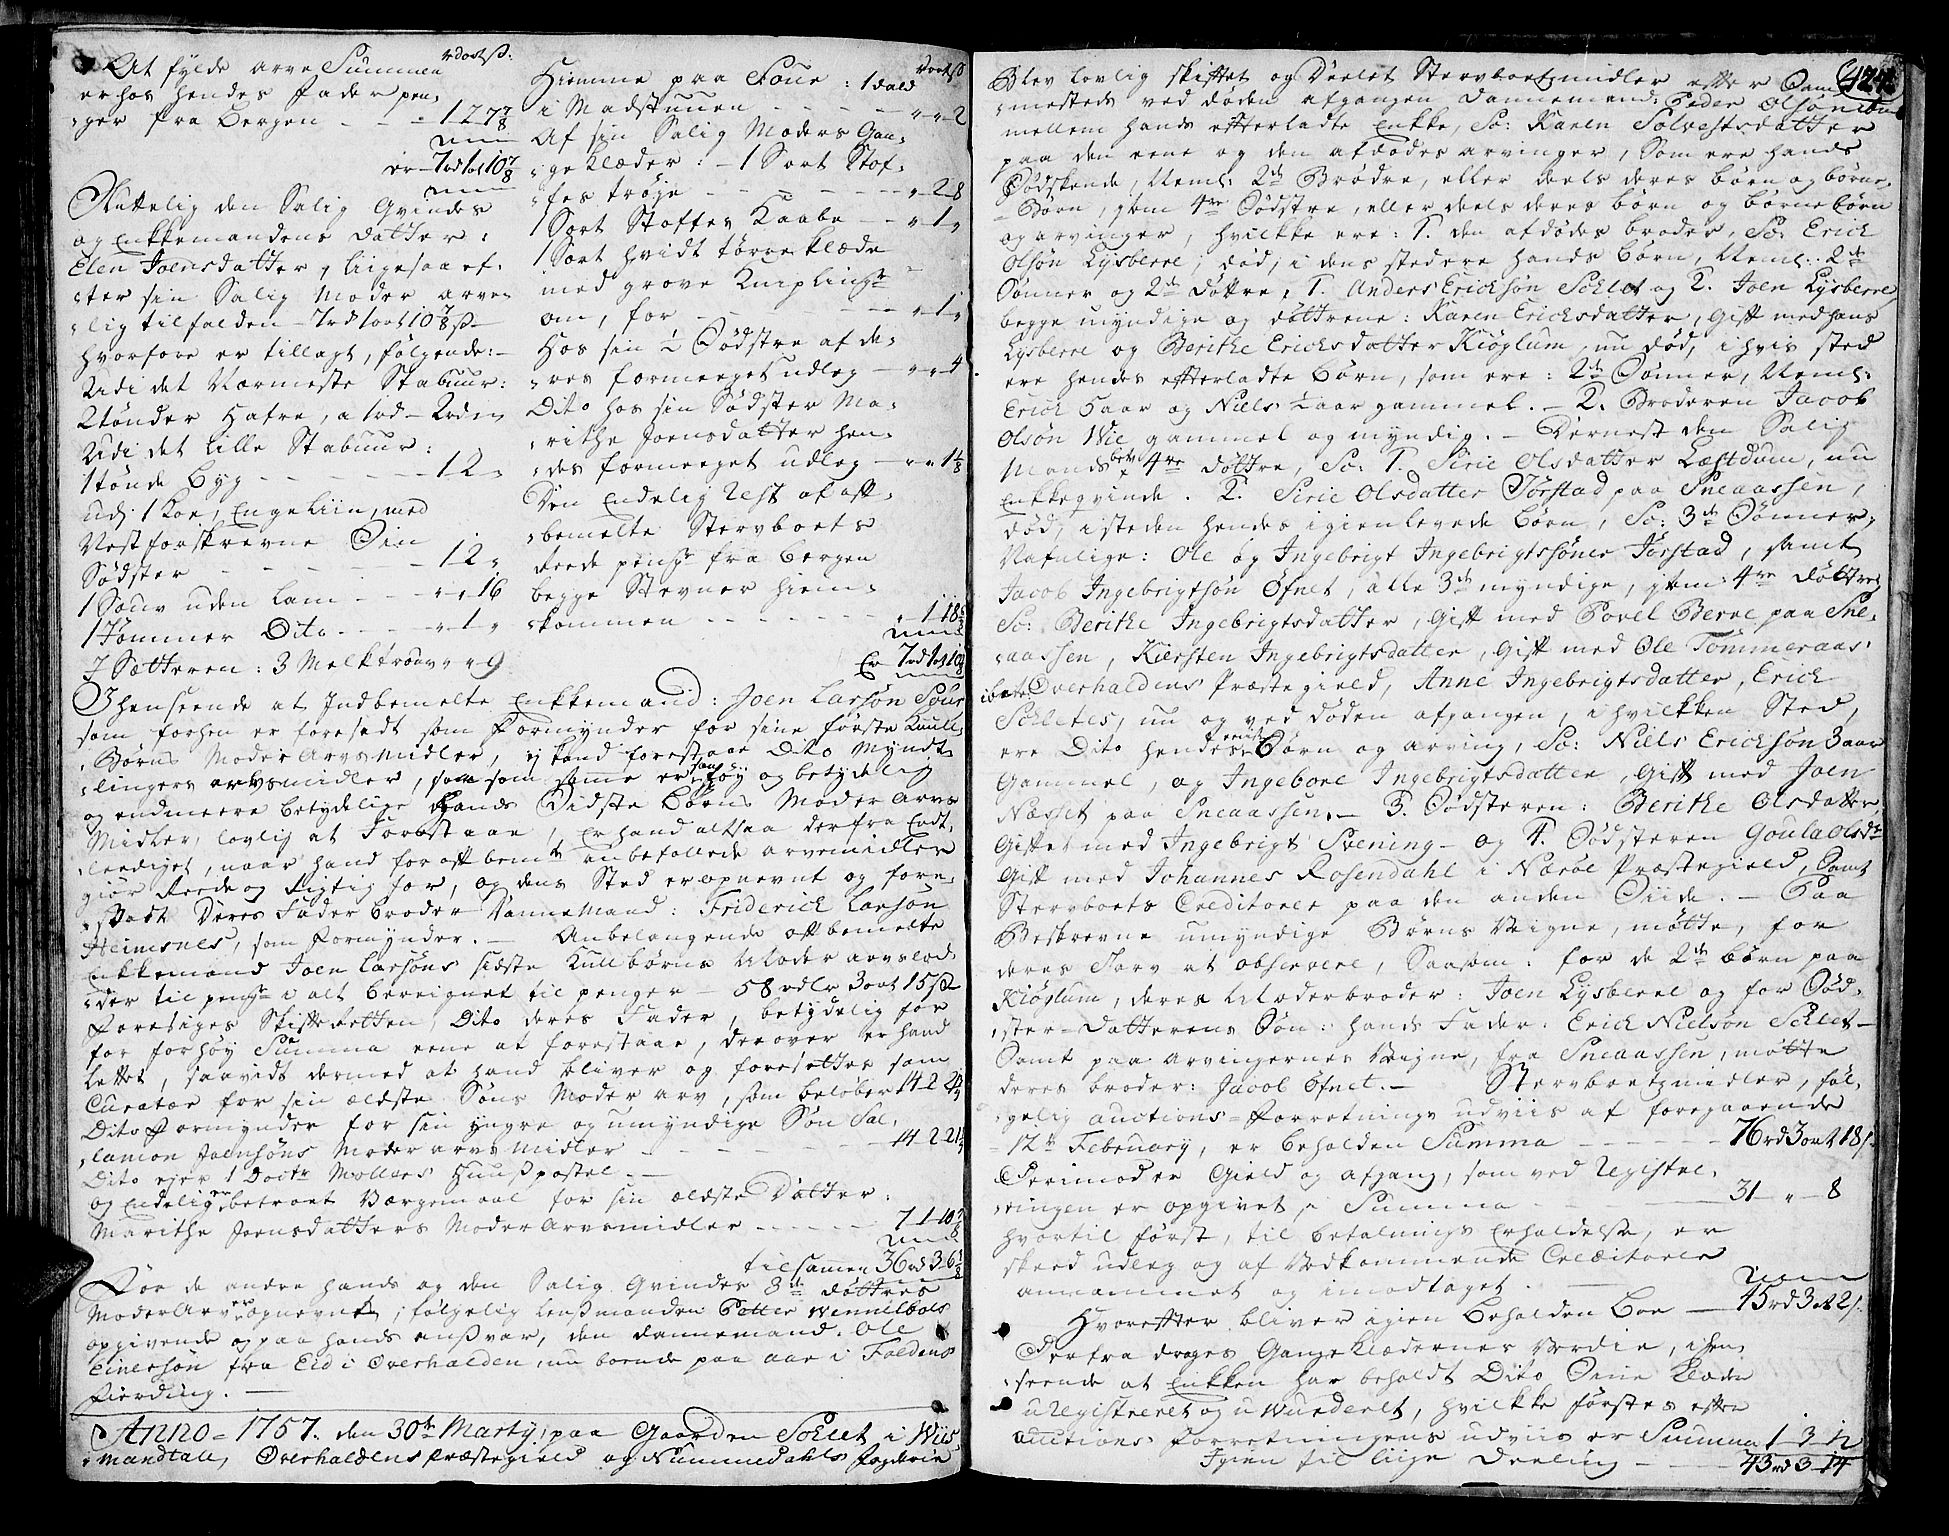 At fylde arve Summen
erhos hendes fader pen¬
ger fra bergen - - - 1 2 7 7/8
er - 7rd 1ort 10 7/8
Nættelig den Salig Qvindes
og Enkkemandens datter:
Elen Joensdatter, liigesaa ef¬
ter sin Salig Moder arve¬
lig tilfalden - 7rd 1ort 10 7/8 s -
hvorfore er tillagt, følgende: -
Udi det Nærmeste Stabuur:
2 tønder Hafre, a 1rd - 2 rd
Udi det lille Stabuur:
1 tønde byg - - - - - 1 2 „
udj 1 Koe, Engeliin, med
Næstforskrevne Siin
Sødster - - - - - 1 2 „
1 Souv uden lam - - - „ „ 16
1 Tømmer Dito - - - - „ 1 „
J Sætteren: 3 Melktrouv „ „ 9
Hiemme paa Four: 1 dald
i Madstuuen - - - - „ „ 2
Af sin Salig Moders Gan¬
geklæder: - 1 Sort Stof¬
fes trøye - - - - - „ 2 8
1 Sort Stoffes Kaabe - - „ 1 „
1 Sort hvidt tørreklæde
med grove Kniplinger
om, for - - - - - „ 1 „
Hos sin 1/2 Sødstre af de¬
res formeeget udlæg - „ „ 4
Dito hos sin Sødster Ma¬
rithe Joensdatter hen¬
des formeeget udlæg - „ „ 1 1/8
Den Endelig Rest af oft¬
bemelte Stervboets
reede penger fra bergen
begge Stevner hiem¬
kommen - - - - - „ 1 18
Er 7rd 1ort 10
J henseende at Indbemelte Enkkemand: Joen Larsøn Four
som forhen er foresadt som Formynder for sine første Kuuls
Børns Moder Arvs midler, ej kand forestaae Dito Mynd¬
lingers arvsmidler, saa som samme er høy og betydelig
og endmeere betydelige hands Sidste børns Moder Arvs
Midler lovlig at Forestaae, Er hand altsaa derfra Endt¬
leediget, naar hand for oft bemte anbefallede arvemidler
giør Rede og Rigtig for, og dens Sted er opnevnt og fore¬
sadt Deres Faderbroder Dannemand: Friderich Larsøn
Heimsnes, som formynder. - Anbelangende oftbemelte
Enkkemand Joen Larsøns sidste Kuldbørns Moder arvslod¬
der til penge i alt bereignet til penger - 58 rdlr 3 ort 15 s
foresiges Skifteretten, Dito deres Fader, betydelig for
for høy Summa eene at forestaae, derover er hand
lettet, saavidt dermed at hand bliver og foresettes som
Curator for sin ældste Søns Moder arv, som beløber 14 2 21 1/4
Dito formynder for sin yngre og umyndige Søn Sal¬
lamon Joensøns Moder arvs midler - - - 14 2 21 1/4
Dito ejer 1 Doctr Møllers Huuspostel -
og Endelig er betroet Værgemaal for sin ældste Datter:
Marithe Joensdatters Moder Arvsmidler - - - - 7 1 10 7/8
tilsamen 36rd 3 6 1/8
For de andre hands og den Salig Qvindes 3de døttres
Moder Arv er opnevnt, følgelig lensmanden Petter Wennelbos
opgivende og paa hands ansvar, den dannemand: Ole
Einersøn fra Eid i Overhalden, nu boende paa aar i Foldens
fierding. -
Anno - 1757. den 30te Marty, paa Gaarden Schlet i Wiis
mandtall, Overhaldens Præstegield og Nummedahls fogderie
424
Blev lovlig skiftet og Deelet Stervboets midler efter Sam¬
mesteds ved døden afgangen Dannemand: Peder Olsøn
mellem hands efterladte Enkke, Sc: Karen Solvestsdatter
paa den eene og den afdødes arvinger, Som ere hands
Sødskende, Neml: 2de Brødre, eller deels deres børn og børne
Børn, item 4re Sødstre, eller deels deres børn og børnebørn
og arvinger, hvilkke ere: 1. den afdødes broder, Sc: Erich
Olsøn Lysberre, død, i dens stedere hands børn, Neml: 2de
Sønner og 2de døttre, 1. Anders Erichsøn Schlet og 2. Joen Lysberre
begge myndige og døttrene: Karen Erichsdatter, Gift med Hans
Lysberre og Berithe Erichsdatter Kiøglum, nu død, i hvis sted
ere hendes efterladte børn, som ere: 2de Sønner, Neml:
Erich 5 aar og Niels 2 aar gammel. - 2. Broderen Jacob
Olsøn Wie gammel og myndig. - Dernest den Salig
Mands 4re døttre, Sc: 1. Sirie Olsdatter Læstdum, nu
Enkkeqvinde. 2. Sirie Olsdatter Jørstad paa Sneaassen,
død, i steden hendes igienlevede børn, Sc: 3de Sønner,
Nafnlige: Ole og Ingebrigt Ingebrigtssøner Jørstad, samt
Jacob Ingebrigtsøn Øfnet, alle 3de myndige, item: 4re døttre
Sc: Berithe Ingebrigtsdatter, Gift med Povel Berre paa Sne¬
aassen, Kiersten Ingebrigtsdatter, Gift med Ole Tømmeraas
ibete Overhaldens Præstegield, Anne Ingebrigtsdatter, Erich
Schletes, nu og ved døden afgangen, i hvilkken Sted,
ere Dito hendes børn og arving, Sc: Niels Erichsøn 3 aar
Gammel, og Ingebore Ingebrigtsdatter, Gift med Joen
Næsset paa Sneaassen. - 3. Sødsteren: Berithe Olsdatter
Giftet med Ingebrigt Svening - og 4. Sødsteren Goula Olsdtr
Gift med Johannes Rosendahl i Nærøe Præstegield, Samt
Stervboets Creditorer paa den anden Siide. - Paa
Beskrevne umyndige Børns Veigne, møtte, for
deres Tarv at observere, Saasom: for de 2de børn paa
Kiøglum, deres Moderbroder: Joen Lysberre og for Sød¬
ster-Datterens Søn: hands Fader: Erich Nielsøn Schlet -
Samt paa arvingernes Veigne, fra Sneaassen, møtte
deres broder: Jacob Øfnet. - Stervboets midler, føl¬
gelig auctions-Forretnings udviis af foregaaende
12te February, er beholden Summa - - - - 76rd 3ort 18 s
Derimod er Gield og afgang, som ved Registre¬
ringen er opgivet, Summa - - - 31 „ 8
hvortil først, til betalnings Erholdelse, er
skeed udlæg og af Vedkommende Creditorer
annammet og imodtaget. -
Hvorefter bliver igien beholden boe - 45rd 3 ort 2 s
Derfra drages Gangeklædernes Verdie, i hen¬
seende at Enkken har beholdt Dito Sine klæder
uRegistreret og uWurderet, hvilkke førstes efter
auctions forretningens udviis er Summa 1 - 3 - 12
Igien til liige Deeling - - - 43rd 3 - 14